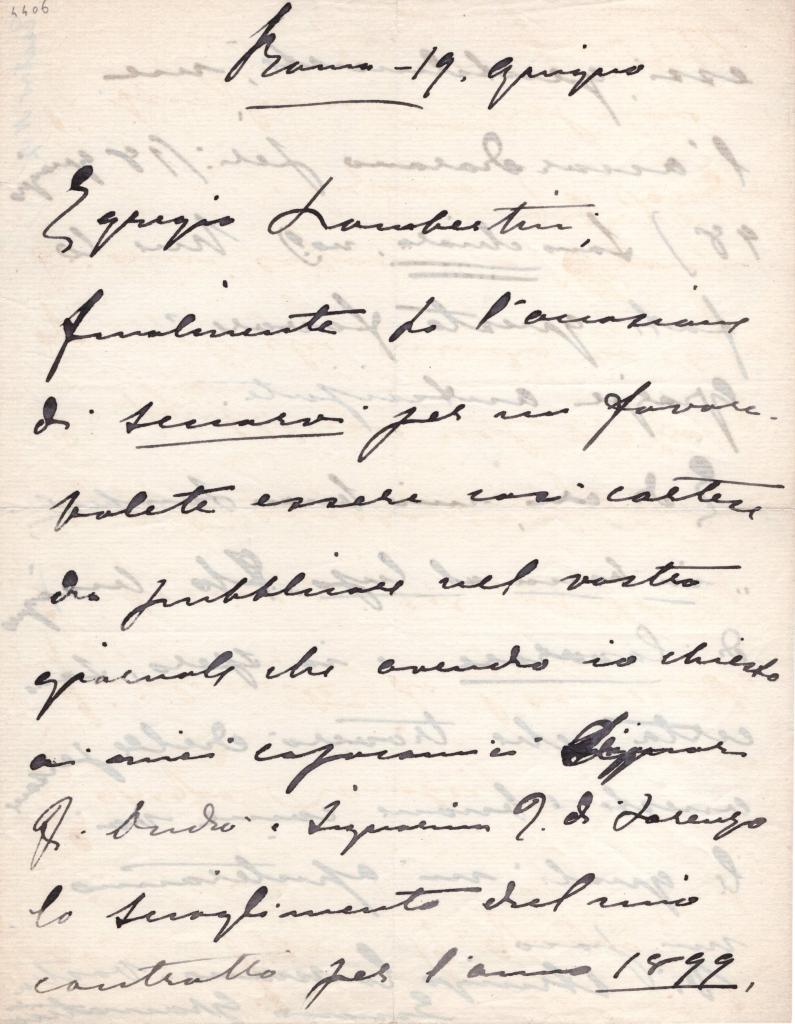 4406
Roma - 19. giugno
Egregio Lambertini,
finalmente ho l'occasione
di seccarvi per un favore.
Volete essere così cortese
da pubblicare nel vostro
giornale che avendo io chiesto
ai miei capocomici Signor
F. Andò e Signorina T. di Lorenzo
lo scioglimento del mio
contratto per l'anno 1899,